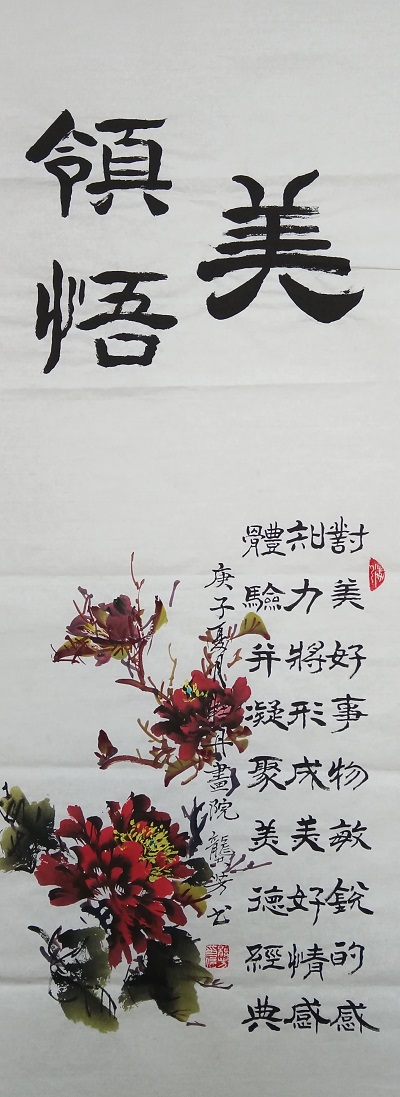 美
領悟
對美好事物敏銳的感
知力將形成美好情感
體驗并凝聚美德經典
庚子夏月牡丹畫院龔芳书